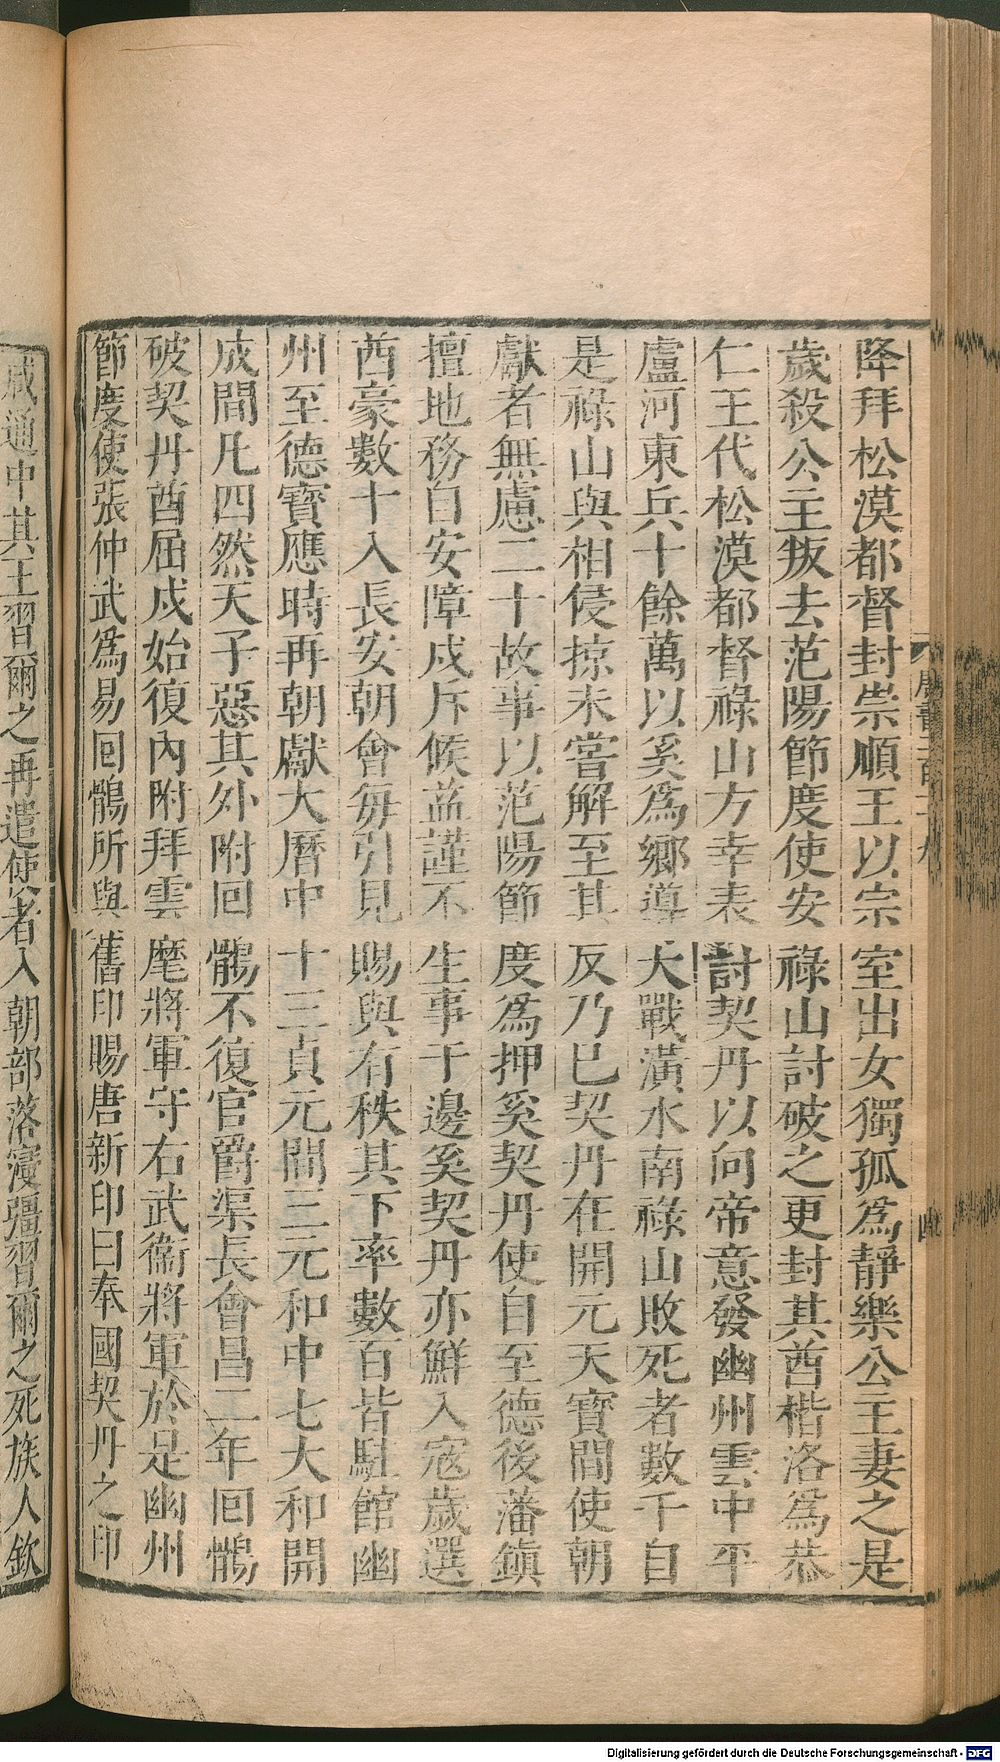 降拜松漠都督封崇順王以宗室出女獨孤爲靜樂公主妻之是
歲殺公主叛去范陽節度使安祿山討破之更封其酋楷洛爲恭
仁王代松漠都督祿山方幸表討契丹以向帝意發幽州雲中平
盧河東兵十餘萬以奚爲鄉導大戰潢水南祿山敗死者數千自
是祿山與相侵掠未嘗解至其反乃已契丹在開元天寶間使朝
獻者無慮二十故事以范陽節度爲押奚契丹使自至德後藩鎮
擅地務自安障戍斥候益謹不生事于邊奚契丹亦鮮入寇歲選
酋豪數十入長安朝會每引見賜與有秩其下率數百皆駐館幽
州至德寶應時再朝獻大曆中十三貞元間三元和中七大和開
成間凡四然天子惡其外附回鶻不復官爵渠長會昌二年回鶻
破契丹酋屈戍始復內附拜雲麾將軍守右武衞將軍於是幽州
節度使張仲武爲易回鶻所與舊印賜唐新印曰奉國契丹之印
咸通中其王習爾之再遣使者入朝部落寖彊習爾之死族人欽
唐書二百十九
四
Digitalisierung gefördert durch die Deutsche Forschungsgemeinschaft - DFG